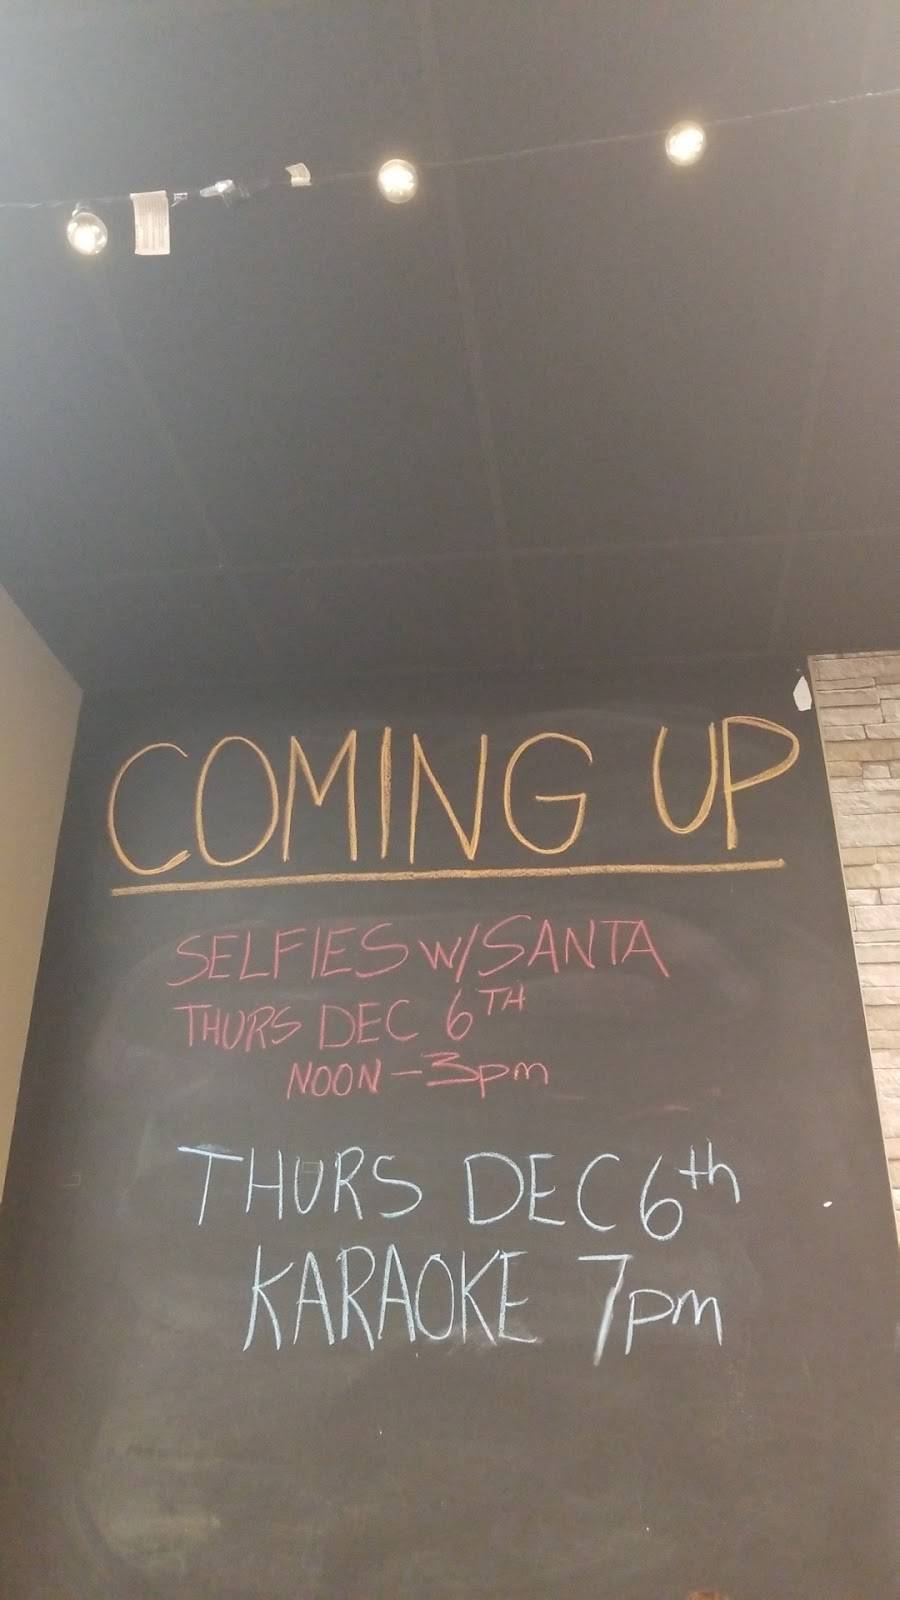 COMING UP
SELFIES W/SANTA
THURS DEC 6TH
NOON - 3pm
THURS DEC 6th
KARAOKE 7pm